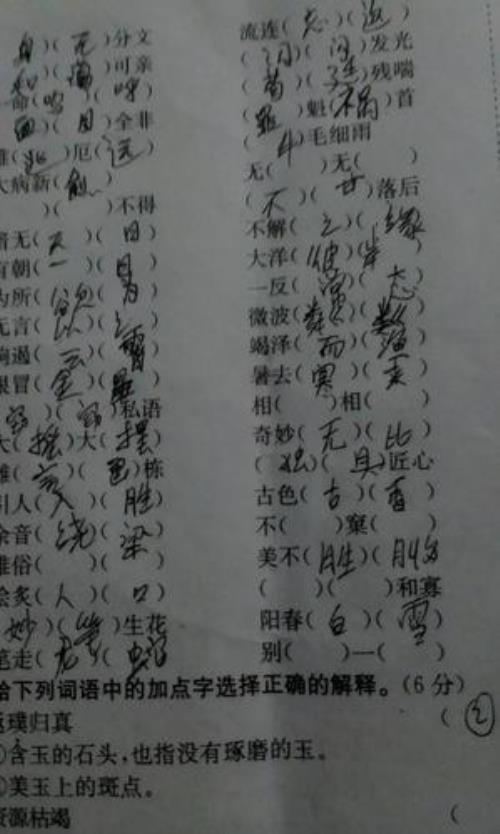 (身)(无)分文 流连(忘)(返)
(和)(蔼)可亲 (闪)(闪)发光
命()(呼) (苟)(延)残喘
(面)(目)全非 (罪)魁(祸)首
难()厄(运) (牛)毛细雨
大病新(愈) 无( )无( )
( )( )不得 (不)(甘)落后
暗无(天)(日) 不解(之)(缘)
有朝(一)(日) 大洋(彼)(岸)
为所(欲)(为) 一反(常)(态)
无言(以)() 微波(粼)(粼)
响遏(云)(霄) 竭泽(而)(渔)
眼冒(金)(星) 暑去(寒)(来)
(窃)(窃)私语 相( )相( )
大(摇)大(摆) 奇妙(无)(比)
雕()()栋 (独)(具)匠心
引人()(胜) 古色(古)(香)
余音(绕)(梁) 不( )窠( )
雅俗( )( ) 美不(胜)(收)
脍炙(人)(口) ( )( )和寡
妙(笔)生花 阳春(白)(雪)
笔走(龙)(蛇) 别( )一( )
给下列词语中的加点字选择正确的解释。(6分)
返璞归真 (②
①含玉的石头,也指没有琢磨的玉。
②美玉上的斑点。
资源枯竭 (